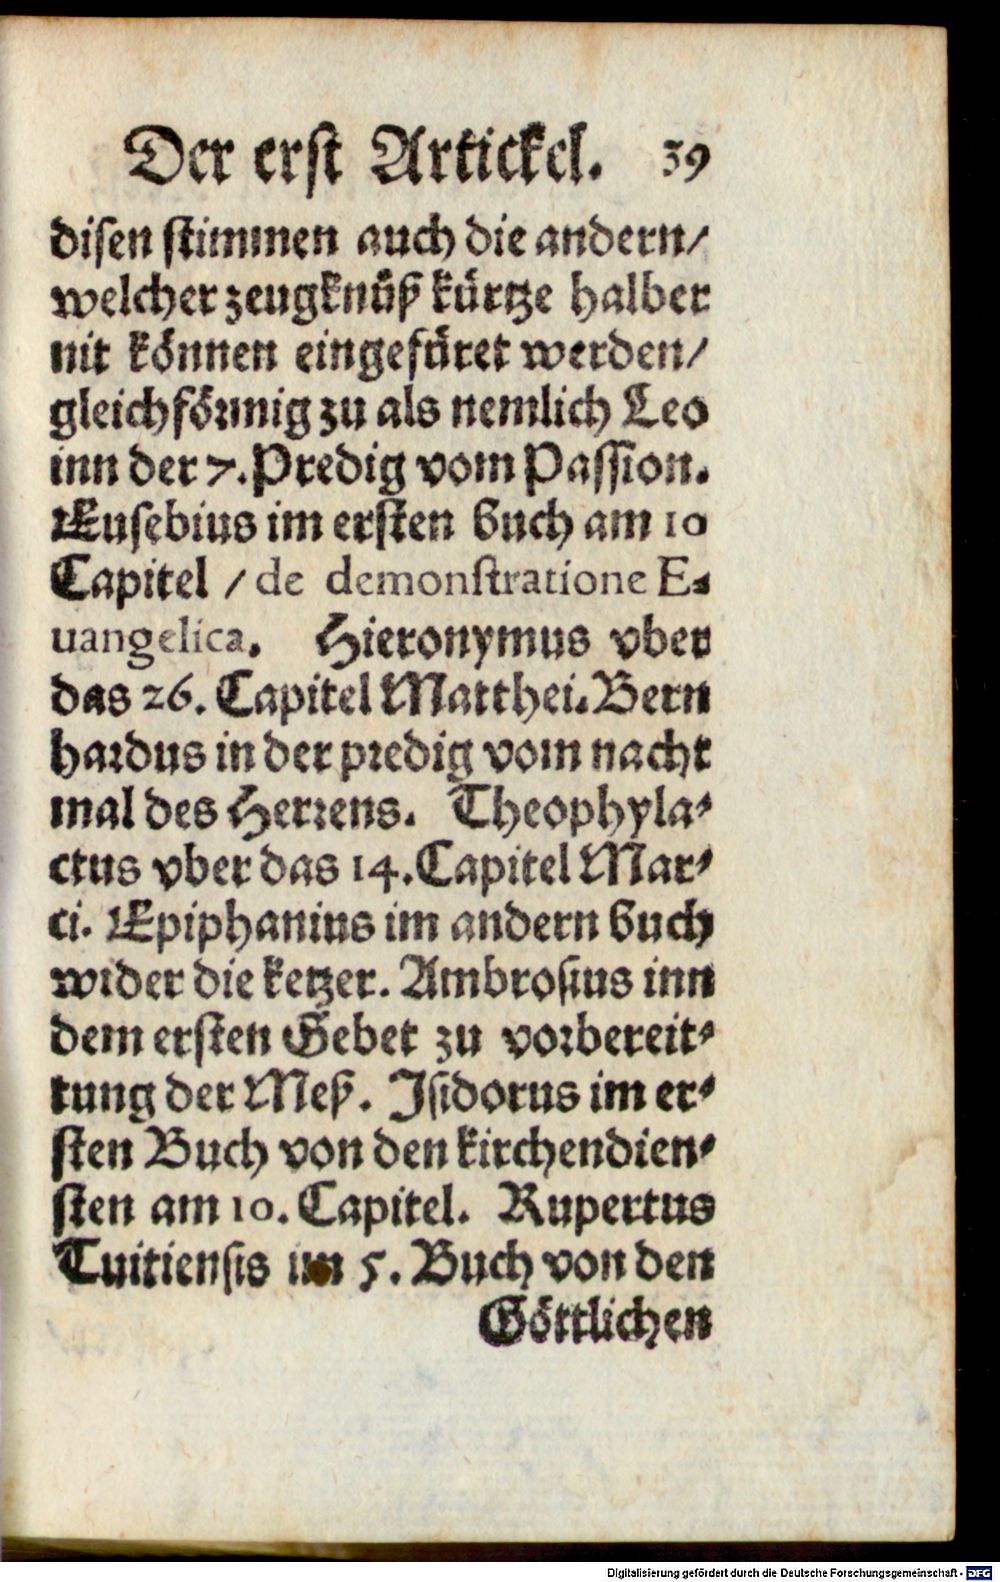 Der erst Artickel. 39
disen stimmen auch die andern/
welcher zeugknüß kürtze halber
nit können eingefüret werden/
gleichförmig zu als nemlich Leo
inn der 7. Predig vom Passion.
Eusebius im ersten buch am 10
Capitel / de demonstratione E-
uangelica. Hieronymus vber
das 26. Capitel Matthei. Bern
hardus in der predig vom nacht
mal des Herrens. Theophyla-
ctus vber das 14. Capitel Mar-
ci. Epiphanius im andern buch
wider die ketzer. Ambrosius inn
dem ersten Gebet zu vorbereit-
tung der Meß. Isidorus im er-
sten Buch von den kirchendien-
sten am 10. Capitel. Rupertus
Tuitiensis im 5. Buch von den
Göttlichen
Digitalisierung gefördert durch die Deutsche Forschungsgemeinschaft - DFG